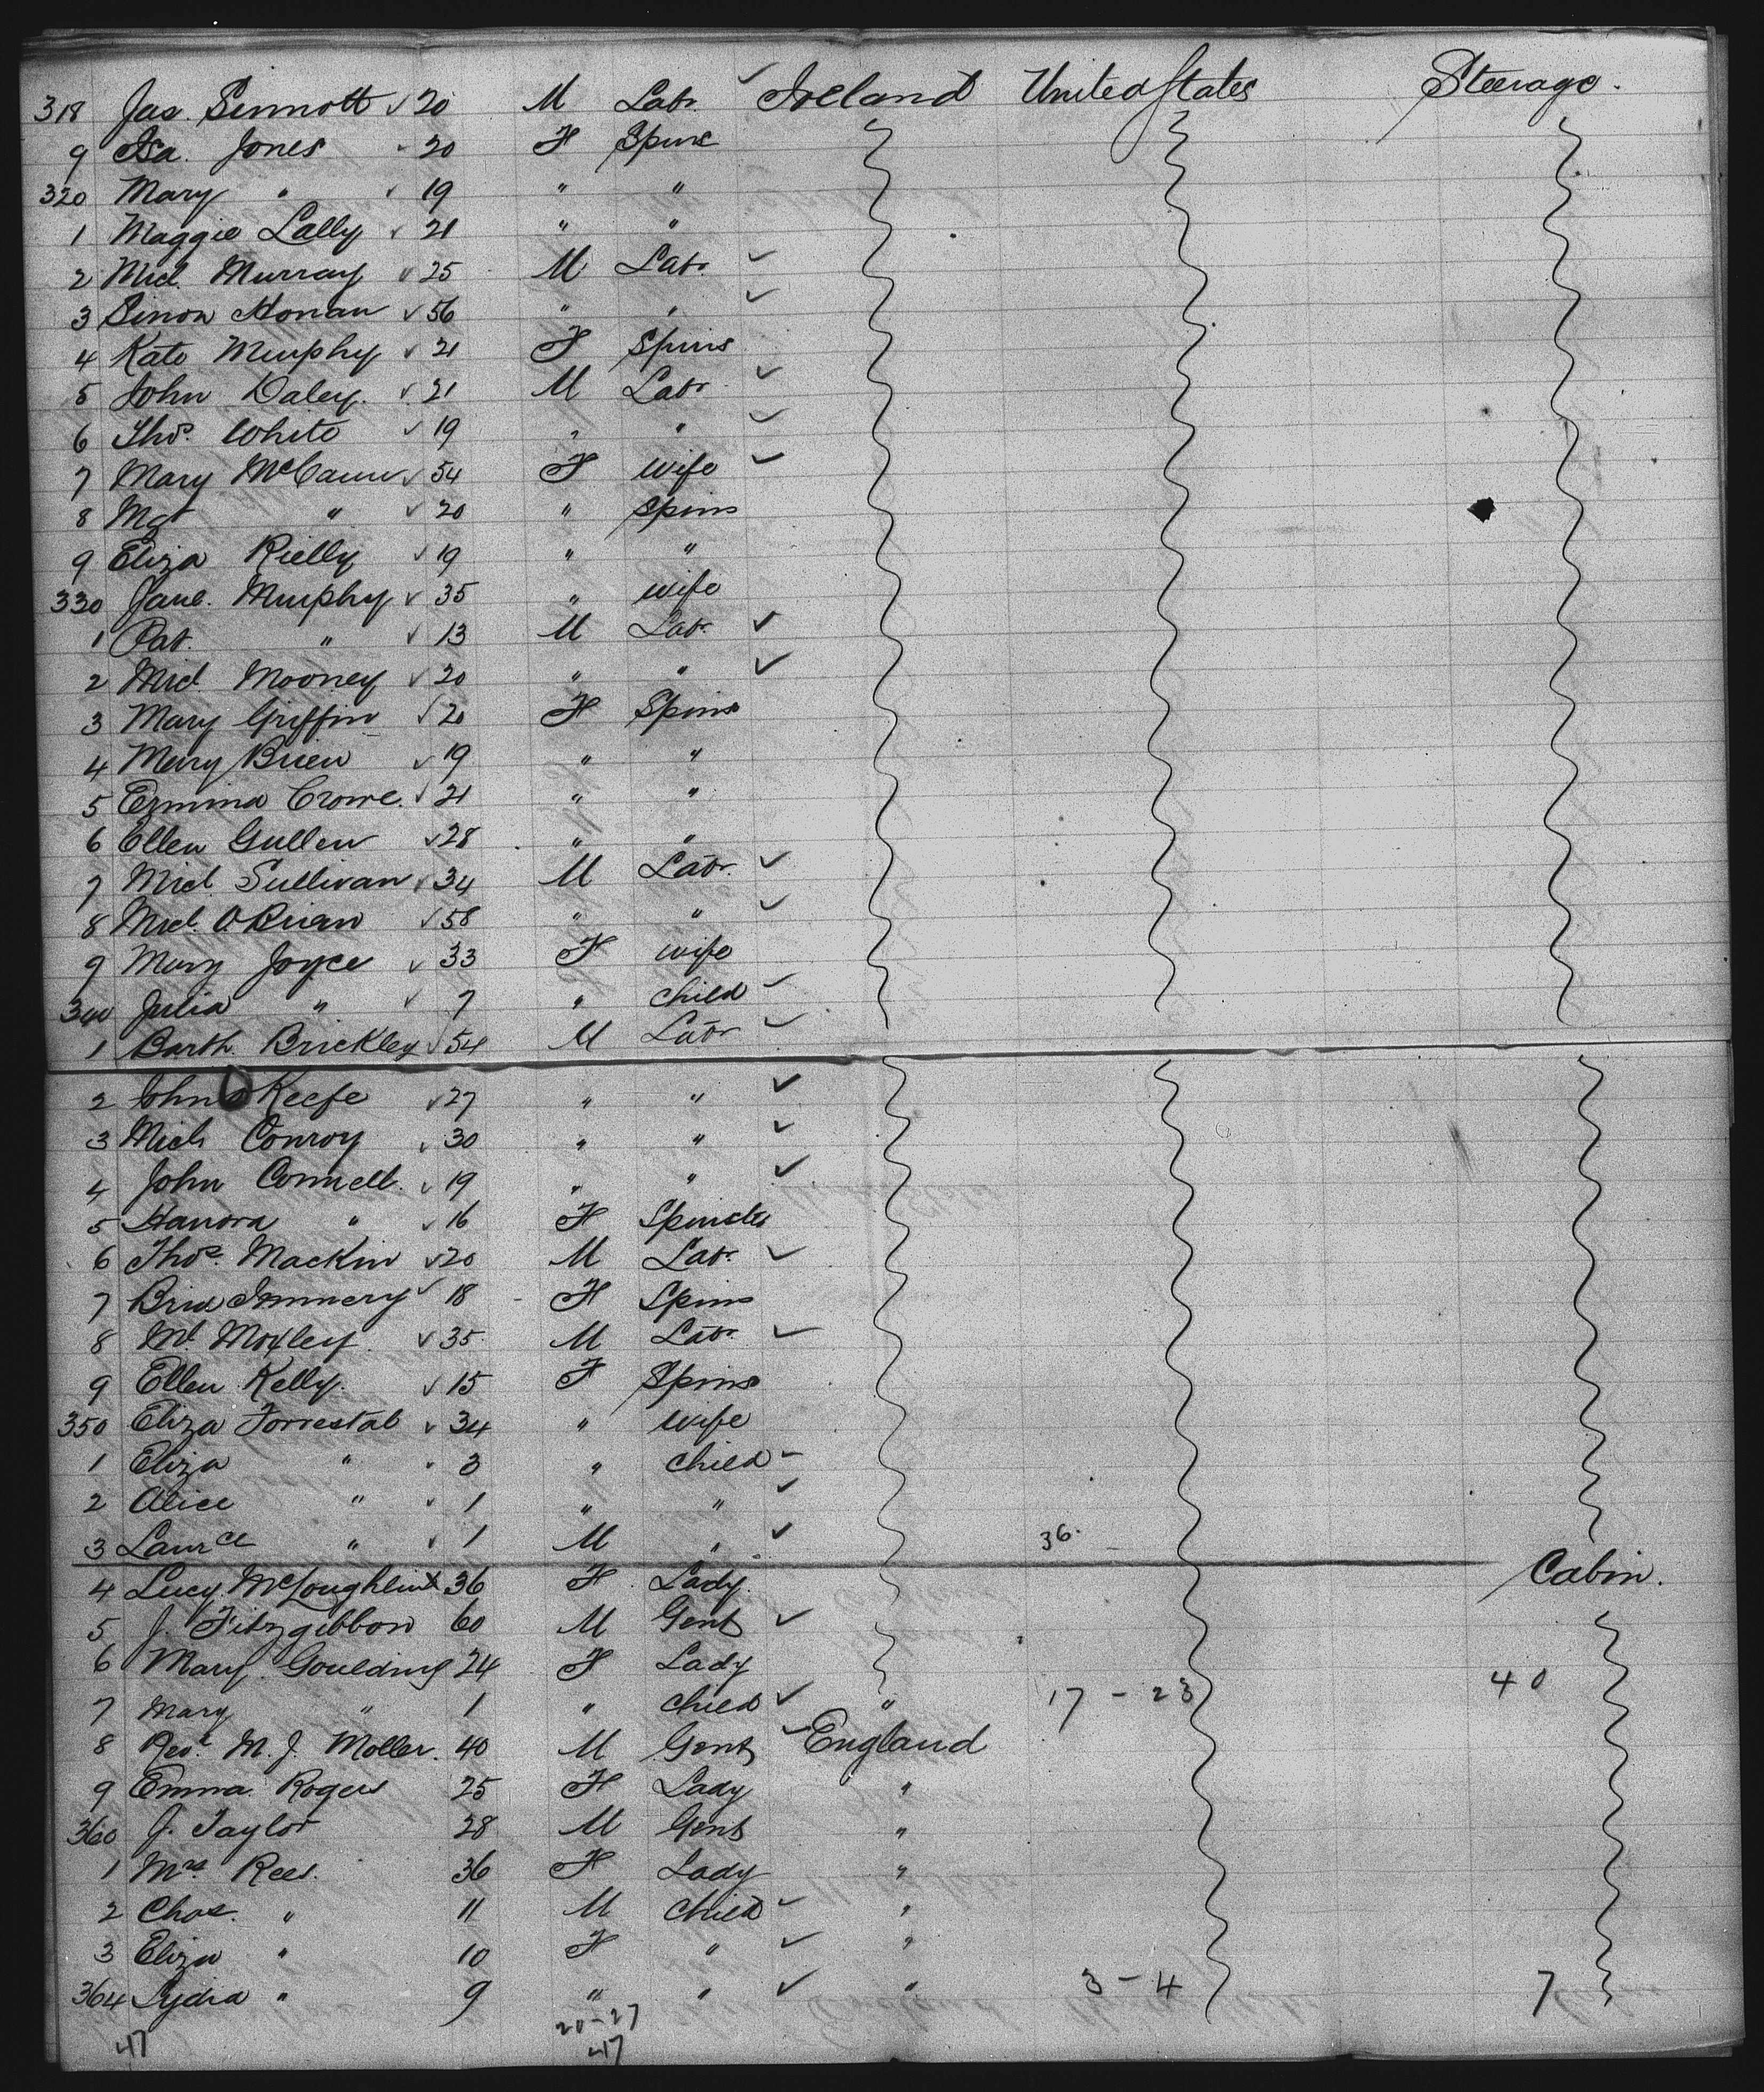 318 Jas. Sinnott ✓ 20 M Labr. ✓ Ireland United States Steerage.
9 Isa. Jones 20 F Spins
320 Mary " ✓ 19 " "
1 Maggie Lally ✓ 21 " "
2 Micl. Murray ✓ 25 M Labr. ✓
3 Simon Honan ✓ 56 " " ✓
4 Kate Murphy ✓ 21 F Spins
5 John Daley. ✓ 21 M Labr ✓
6 Thos. White ✓ 19 " " ✓
7 Mary McCann ✓ 54 F wife ✓
8 Mgt " ✓ 20 " Spins
9 Eliza Rielly ✓ 19 " "
330 Jane. Murphy ✓ 35 " wife
1 Pat. " ✓ 13 M Labr ✓
2 Micl. Mooney ✓ 20 " " ✓
3 Mary Griffin ✓ 20 F Spins
4 Mary Brien ✓ 19 " "
5 Ermina Crowe. ✓ 21 " "
6 Ellen Gullen ✓ 28 " "
7 Micl. Sullivan ✓ 34 M Labr. ✓
8 Micl. O Brien ✓ 58 " " ✓
9 Mary Joyce ✓ 33 F wife
340 Julia " ✓ 7 " child ✓
1 Barth. Brickley ✓ 54 M Labr ✓
2 John O Keefe ✓ 27 " " ✓
3 Mich Conroy ✓ 30 " " ✓
4 John Connell. ✓ 19 " " ✓
5 Hanora " ✓ 16 F Spinster
6 Thos. Mackin ✓ 20 M Labr. ✓
7 Brid ✓ 18 F Spins
8 Ml. Moxley. ✓ 35 M Labr. ✓
9 Ellen Kelly. ✓ 15 F Spins
350 Eliza Forrestal ✓ 34 " wife
1 Eliza " ✓ 3 " child -
2 Alice " ✓ 1 " " ✓
3 Laurce " ✓ 1 M " ✓ 36.
4 Lucy McLoughlin 36 F Lady. Cabin.
5 J. Fitzgibbon 60 M Gent ✓
6 Mary Goulding 24 F Lady
7 Mary " 1 " child ✓ " 17 - 23 40
8 Revd. M. J. Moller. 40 M Gent ✓ England
9 Emma Rogers 25 F Lady "
360 J. Taylor 28 M Gent "
1 Mrs. Rees. 36 F Lady "
2 Chas. " 11 M child ✓ "
3 Eliza " 10 F " ✓ "
364 Lydia " 9 " " ✓ " 3 - 4 7
20-27
47 47